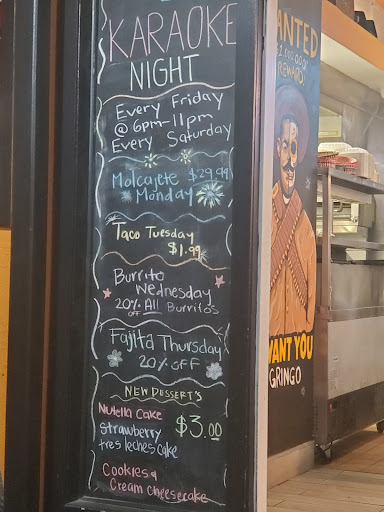 KARAOKE
NIGHT
Every Friday
@ 6pm-11pm
Every Saturday
Molcajete $29.99
Monday
Taco Tuesday
$1.99
Burrito
Wednesday
20% OFF All Burritos
Fajita Thursday
20% OFF
NEW DESSERT'S
Nutella Cake
$3.00
strawberry
tres leches cake
Cookies &
Cream cheesecake
ANTED
REWARD
WANT YOU
GRINGO